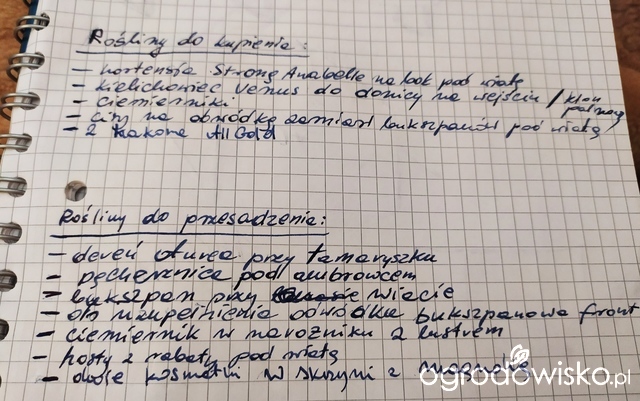 Rośliny do kupienia:
- hortensja Strong Anabelle na book pod wiatę
- kielichowiec Venus do donicy na wejściu / klon palmowy
- ciemierniki
- cisy na obwódkę zamiast bukszpanów pod wiatą
- 2 hakone All Gold
Rośliny do przesadzenia:
- dereń aurea przy tamaryszku
- pęcherznica pod ambrowcem
- bukszpan przy wiacie
- do uzupełnienia obwódka bukszpanowa front
- ciemiernik w narożniku z lustrem
- hosty z rabaty pod wiatą
- dwie kosmatki w skrzyni z
ogrodowisko.pl